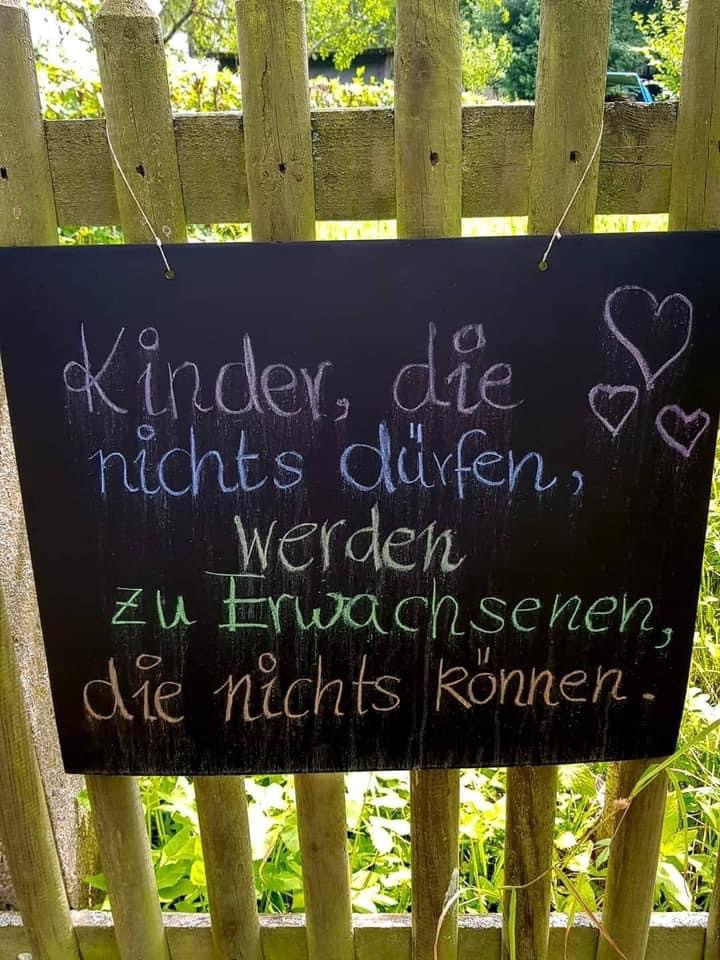 Kinder, die
nichts dürfen,
werden
zu Erwachsenen,
die nichts können.